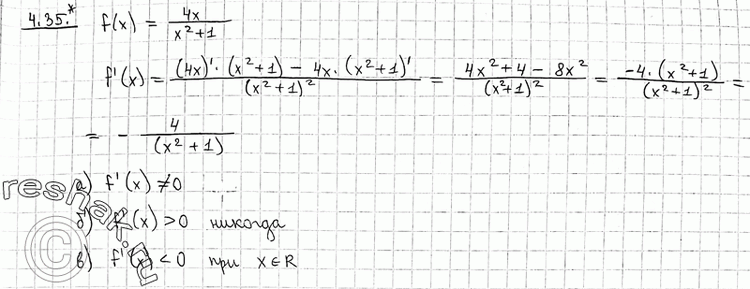 4.35.* f(x) = 4x / (x² + 1)
f'(x) = ((4x)' · (x²+1) − 4x · (x²+1)') / (x²+1)² = (4x² + 4 − 8x²) / (x²+1)² = (−4 · (x²+1)) / (x²+1)² =
= − 4 / (x² + 1)
а) f'(x) ≠ 0
б) f'(x) > 0 никогда
в) f'(x) < 0 при x ∈ R
reshak.ru
©